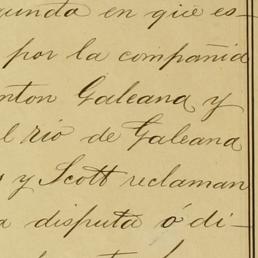 gunda en que es-
por la compañia
nton Galeana y
l rio de Galeana
y Scott reclaman
a disputa ó di-